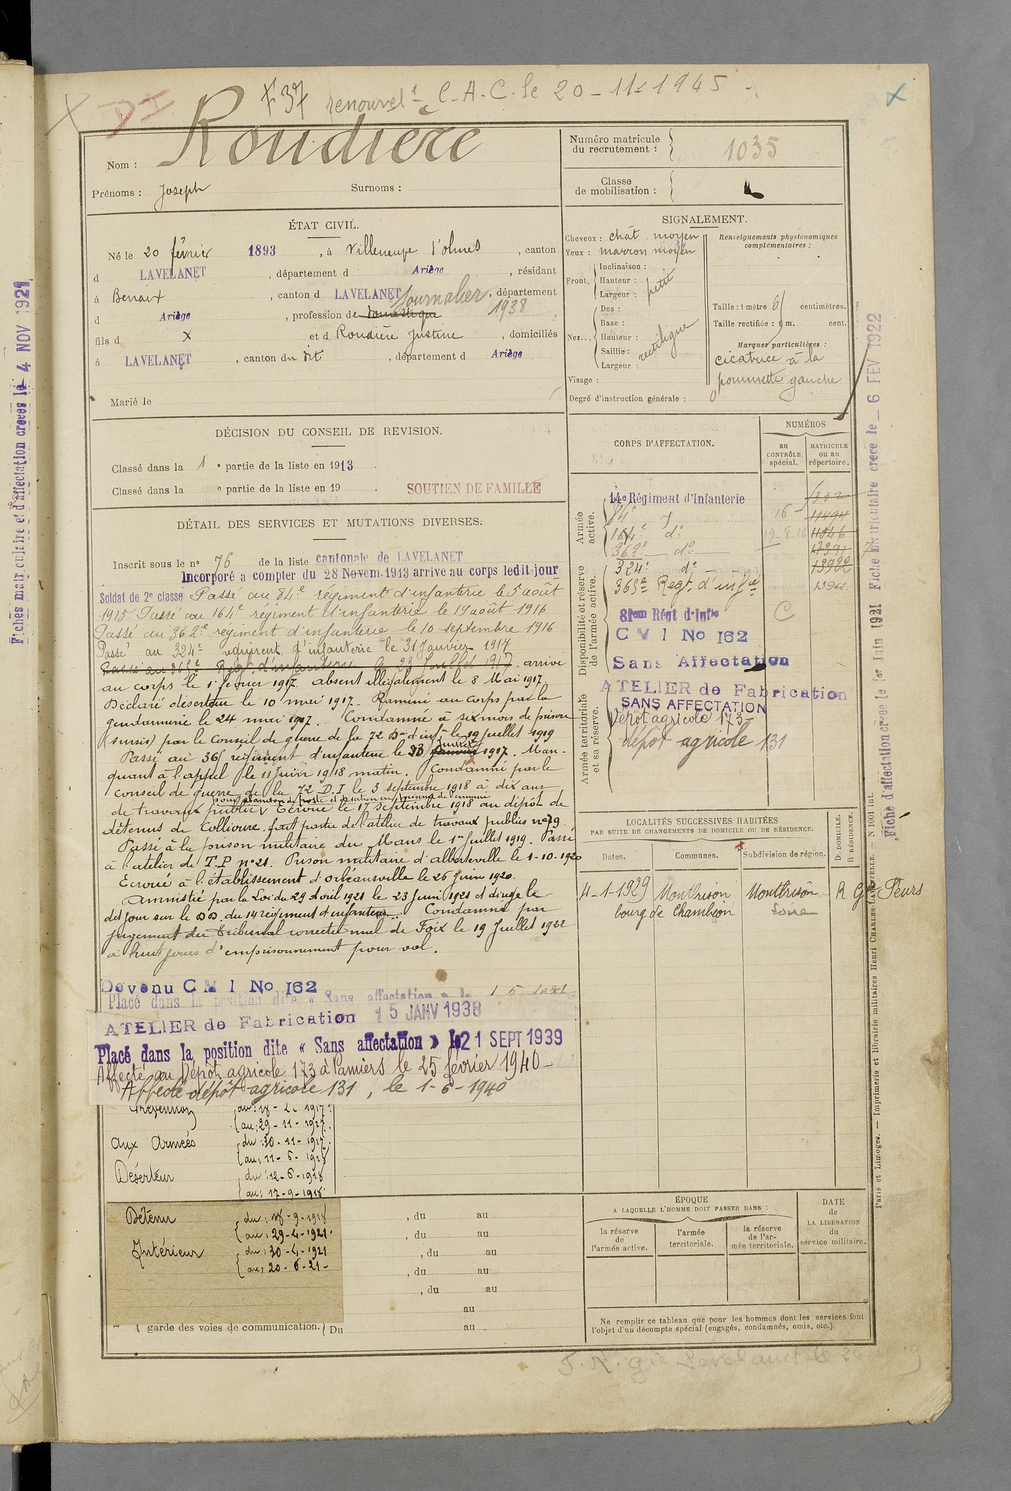 F 37 renouvelt C.A.C. le 20-11-1945
Nom : Roudière
Prénoms : Joseph Surnoms :
Numéro matricule du recrutement : 1035
Classe de mobilisation :
ÉTAT CIVIL.
Né le 20 février 1893, à Villeneuve d'olmes, canton
d LAVELANET, département d Ariège, résidant
à Benaix, canton d LAVELANET, département
d Ariège, profession de domestique Journalier 1938,
fils d x et d Roudière Justine, domiciliés
à LAVELANET, canton du dit, département d Ariège
Marié le
SIGNALEMENT.
Cheveux : chat. moyen
Yeux : marron moyen
Front. Inclinaison :
Hauteur : petit
Largeur :
Nez... Dos :
Base :
Hauteur : rectiligne
Saillie :
Largeur :
Visage :
Degré d'instruction générale : 0
Renseignements physionomiques complémentaires :
Taille : 1 mètre 61 centimètres.
Taille rectifiée : 1 m. cent.
Marques particulières :
cicatrice à la
pommette gauche
DÉCISION DU CONSEIL DE REVISION.
Classé dans la 1e partie de la liste en 1913
Classé dans la e partie de la liste en 19
SOUTIEN DE FAMILLE
DÉTAIL DES SERVICES ET MUTATIONS DIVERSES.
Inscrit sous le n° 76 de la liste cantonale de LAVELANET
Incorporé a compter du 28 Novem. 1913 arrivé au corps ledit jour
Soldat de 2e classe Passé au 84e régiment d'infanterie le 5 août
1915. Passé au 164e régiment d'infanterie le 9 août 1916
Passé au 362e régiment d'infanterie le 10 septembre 1916
Passé au 324e régiment d'infanterie le 31 Janvier 1917
Passé au 365e Régt d'infanterie le 28 Juillet 1917. arrivé
au corps le 1er février 1917. absent illégalement le 8 Mai 1917
Déclaré déserteur le 10 mai 1917. Ramené au corps par la
gendarmerie le 24 mai 1917. Condamné à six mois de prison
(sursis) par le Conseil de guerre de la 72 Don d'inf. le 19 juillet 1919
Passé au 365 régiment d'infanterie le 1917. Man-
quant à l'appel le 11 Juin 1918 matin. Condamné par le
Conseil de guerre de la 72e D.I le 3 septembre 1918 à dix ans
de travaux publics Ecroué le 17 septembre 1918 au dépôt de
détenus de Collioure. fait partie de l'atelier de travaux publics n°
Passé à la prison militaire du Mans le 1er Juillet 1919. Passé
à l'atelier de T.P n°21. Prison militaire d'albertville le 1-10-1920
Ecroué à l'établissement d'orléansville le 26 Juin 1920.
Amnistié par la Loi du 29 Avril 1921 le 23 Juin 1921 et dirigé le
dit jour sur le D.D. du 14 régiment d'infanterie. Condamné par
jugement du Tribunal correctionnel de Foix le 19 Juillet 1922
à huit jours d'emprisonnement pour vol.
Devenu C M I No 162
Placé dans la position dite « Sans affectation » le
ATELIER de Fabrication 15 JANV 1938
Placé dans la position dite « Sans affectation » le 21 SEPT 1939
Affecté au Dépôt agricole 173 à Pamiers le 25 février 1940-
Affecté dépôt agricole 131, le 1-6-1940
au 29-11-1917
Aux Armées du 30-11-1917
au 11-6-1918
Déserteur du 12-6-1918
au 17-9-1918
Détenu du 18-9-1918
au 29-4-1921
Intérieur du 30-4-1921
au 20-6-21-
, du au
, du au
, du au
, du au
, du au
au
garde des voies de communication. Du au
CORPS D'AFFECTATION.
NUMÉROS
au CONTRÔLE spécial.
MATRICULE ou au répertoire.
Armée active.
14e Régiment d'Infanterie
84e
164e do
362e do
Disponibilité et réserve de l'armée active.
324e do
365e Regt d'infie
81em Rént d'Infie
C M I No 162
Sans Affectation
ATELIER de Fabrication
SANS AFFECTATION
Armée territoriale et sa réserve.
Dépôt agricole 173-
dépôt agricole 131
LOCALITÉS SUCCESSIVES HABITÉES
PAR SUITE DE CHANGEMENTS DE DOMICILE OU DE RÉSIDENCE.
Dates. Communes. Subdivision de région. D. DOMICILE. R. RÉSIDENCE.
4-1-1929 Montbrison Montbrison R Gie Feurs
bourg de Chambéon Loire
ÉPOQUE
A LAQUELLE L'HOMME DOIT PASSER DANS :
la réserve de l'armée active.
l'armée territoriale.
la réserve de l'armée territoriale.
DATE de LA LIBÉRATION du service militaire.
Ne remplir ce tableau que pour les hommes dont les services font
l'objet d'un décompte spécial (engagés, condamnés, omis, etc.).
Fiches matriculaire et d'affectation créées le 4 NOV 1921
Fiche matriculaire créée le 6 FEV 1922
Fiche d'affectation créée le 1er Juin 1921
Paris et Limoges. — Imprimerie et librairie militaires Henri CHARLES-LAVAUZELLE. — N 1001 int.